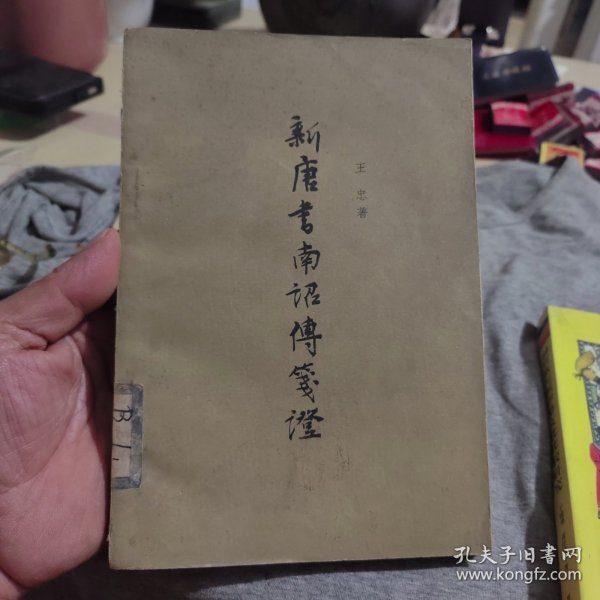 新唐书南詔傳箋證
王忠著
B1.
孔夫子旧书网
www.kongfz.com